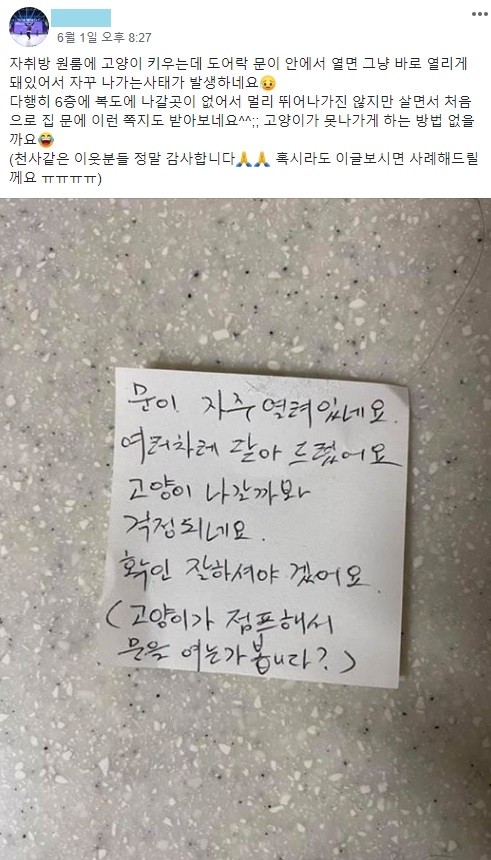 6월 1일 오후 8:27
자취방 원룸에 고양이 키우는데 도어락 문이 안에서 열면 그냥 바로 열리게
돼있어서 자꾸 나가는사태가 발생하네요😥
다행히 6층에 복도에 나갈곳이 없어서 멀리 뛰어나가진 않지만 살면서 처음
으로 집 문에 이런 쪽지도 받아보네요^^;; 고양이가 못나가게 하는 방법 없을
까요😂
(천사같은 이웃분들 정말 감사합니다🙏🙏 혹시라도 이글보시면 사례해드릴
께요 ㅠㅠㅠㅠ)
문이 자주 열려있네요.
여러차례 닫아 드렸어요
고양이 나갈까봐
걱정되네요.
확인 잘하셔야 겠어요.
(고양이가 점프해서
문을 여는가 봅니다?)